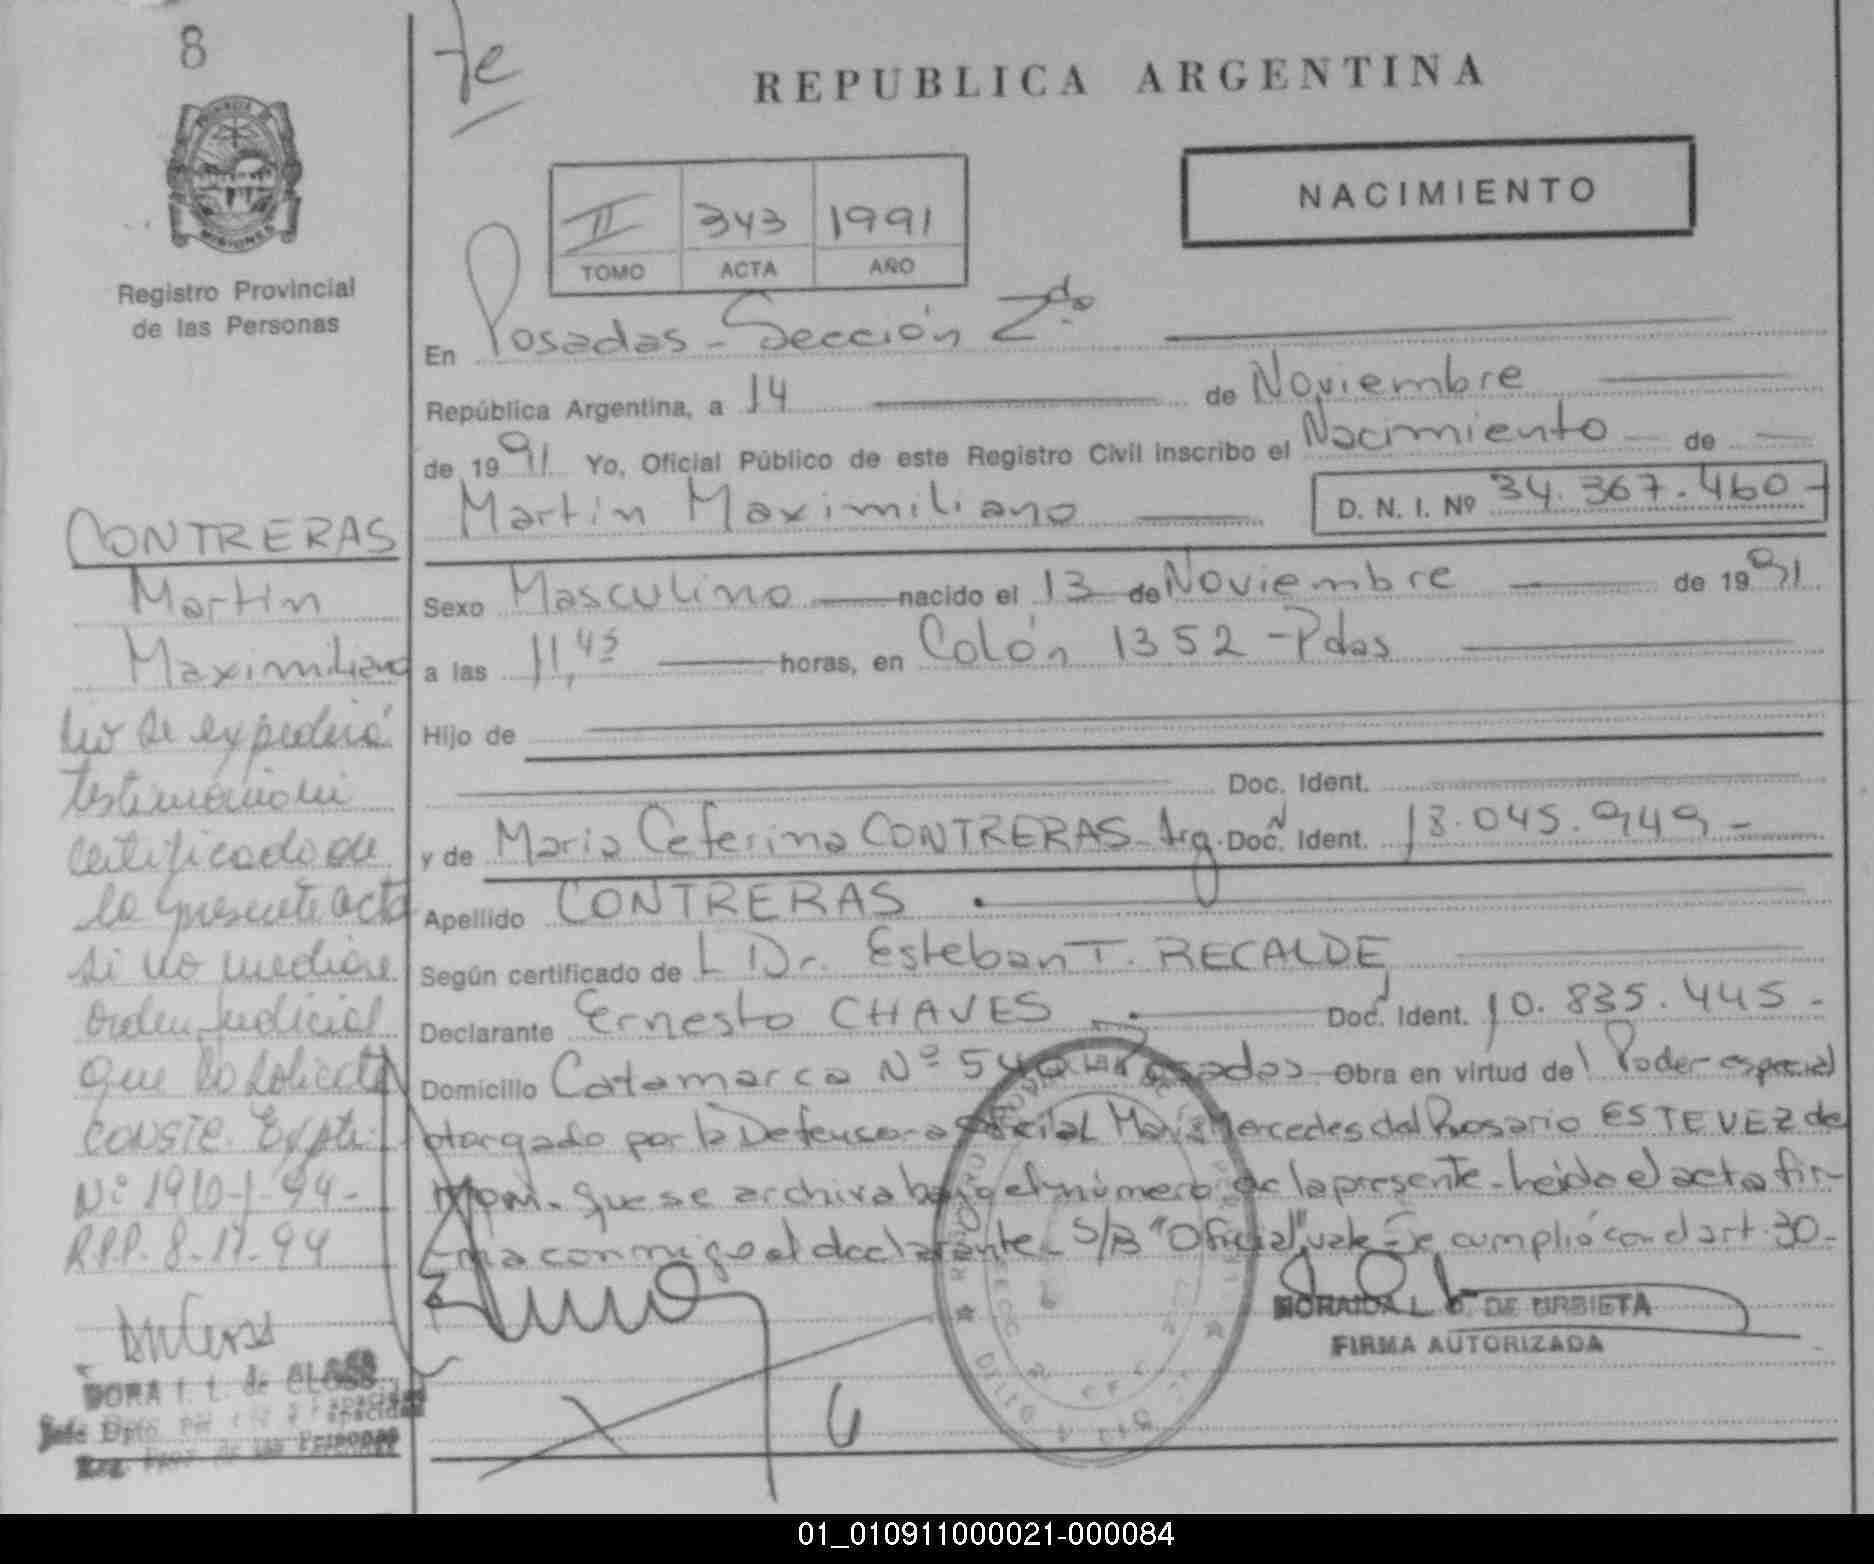 8
Je
REPUBLICA ARGENTINA
NACIMIENTO
II 343 1991
TOMO ACTA AÑO
MISIONES
Registro Provincial
de las Personas
En Posadas - Sección 2da
República Argentina, a 14 de Noviembre
de 1991 Yo, Oficial Público de este Registro Civil inscribo el Nacimiento de
Martin Maximiliano D. N. I. Nº 34.367.460-
CONTRERAS
Martin
Maximiliano
Sexo Masculino nacido el 13 de Noviembre de 1991
a las 11,45 horas, en Colón 1352 - Pdas
Hijo de
Doc. Ident.
y de Maria Ceferina CONTRERAS - Arg. Doc. Ident. 18.045.949-
Apellido CONTRERAS
Según certificado del Dr. Esteban T. RECALDE
Declarante Ernesto CHAVES Doc. Ident. 10.835.445-
Domicilio Catamarca Nº 540 Posadas Obra en virtud del Poder especial
otorgado por la Defensora Oficial María Mercedes del Rosario ESTEVEZ de
que se archiva bajo el número de la presente - Leído el acta fir-
ma conmigo el declarante - S/B "Oficial", vale - Se cumplió con el art. 30-
No se expedirá
testimonio ni
certificado de
la presente acta
si no mediare
orden judicial
que lo solicite
CONSTE. Expte.
Nº 1910-J-94-
R.P.P. 8-11-94
DORA I. L. de
Jefe Dpto.
Reg. Prov. de las Personas
DE URBIETA
FIRMA AUTORIZADA
01_010911000021-000084